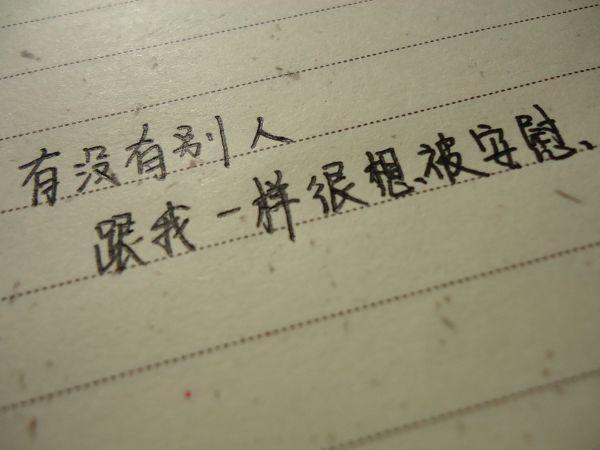 有没有别人
跟我一样很想被安慰